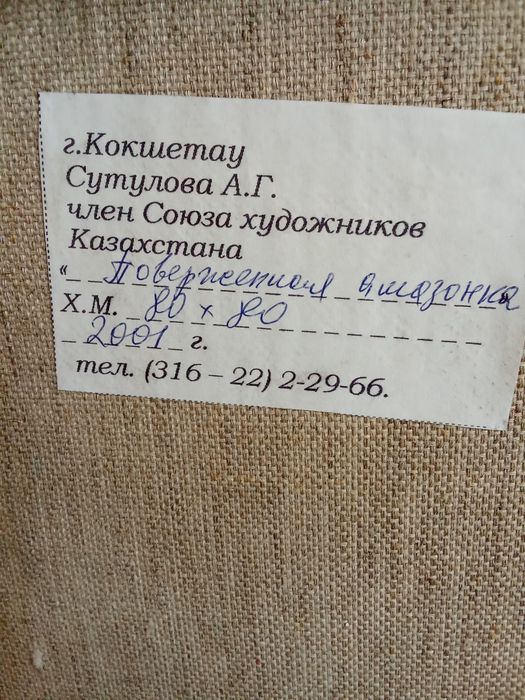 г.Кокшетау
Сутулова А.Г.
член Союза художников
Казахстана
«Поверженная амазонка»
Х.М. 80 х 80
2001 г.
тел. (316 – 22) 2-29-66.